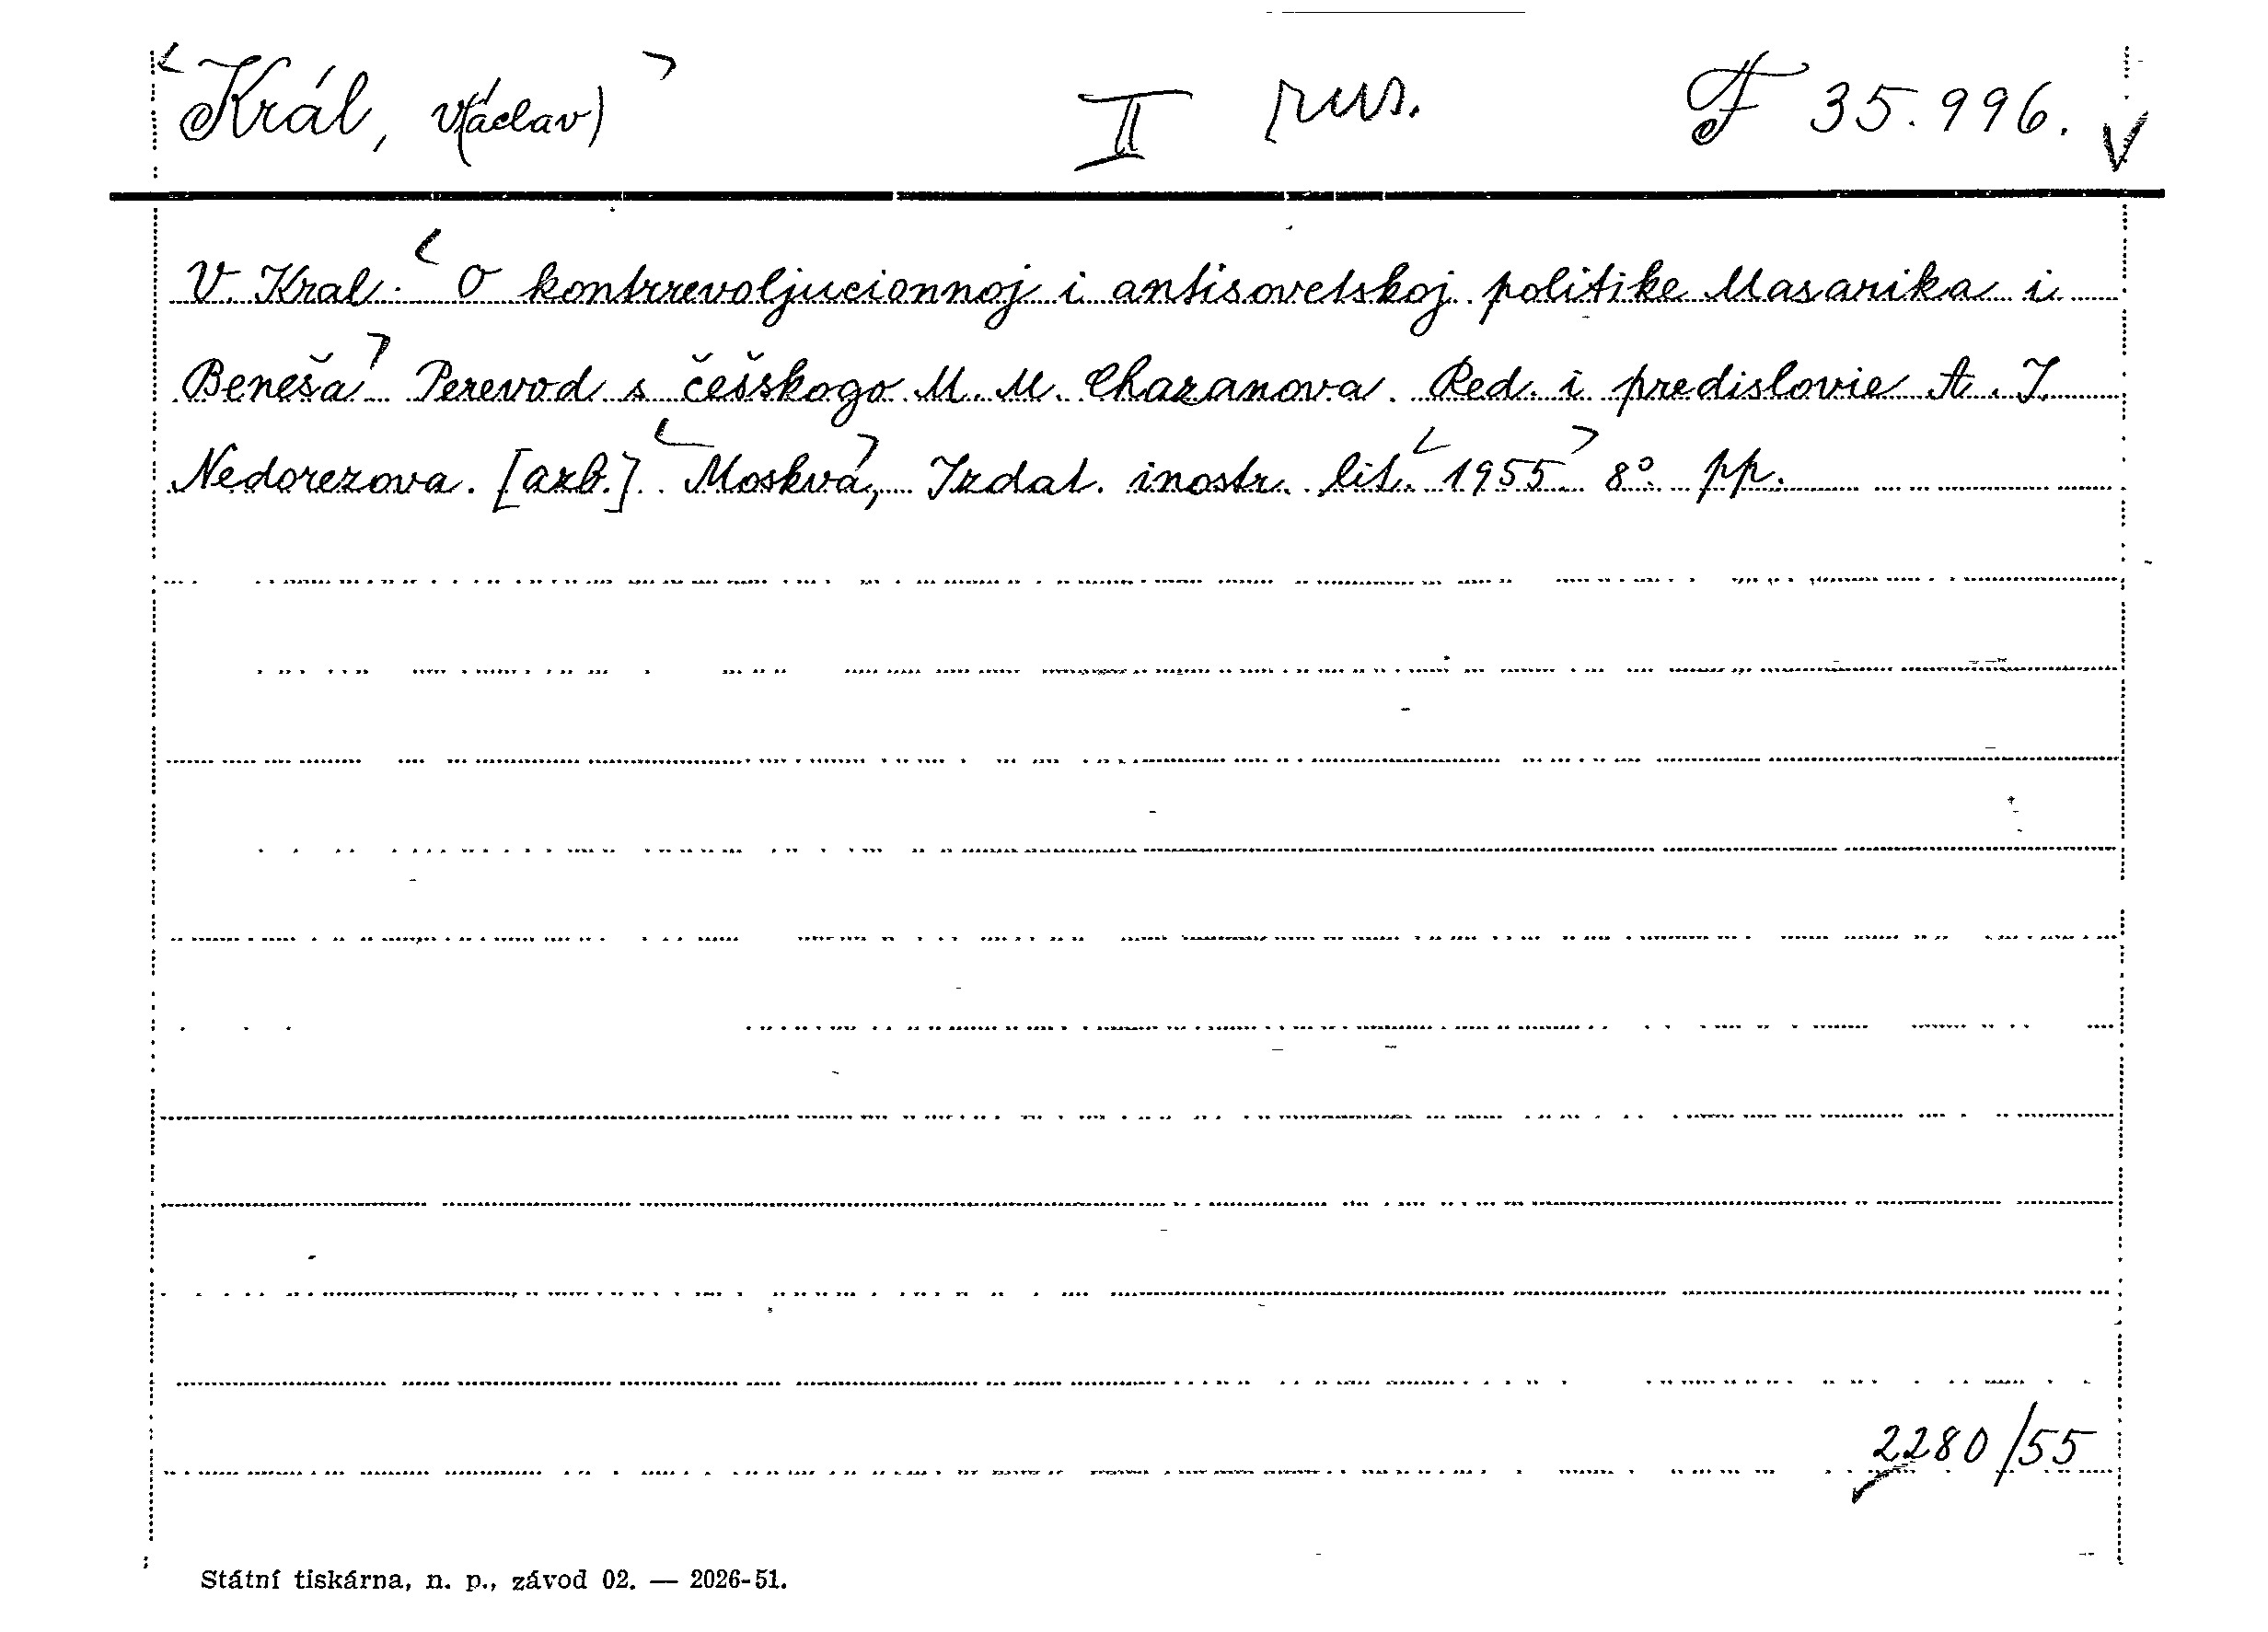 Král, V(áclav) II rus. F 35.996.
V. Kral: O kontrrevoljucionnoj i antisovetskoj politike Masarika i
Beneša. Perevod s češskogo M. M. Chazanova. Red. i predislovie A. I.
Nedorezova. [azb.]. Moskva, Izdat. inostr. lit. 1955 8° pp.
2280/55
Státní tiskárna, n. p., závod 02. — 2026-51.